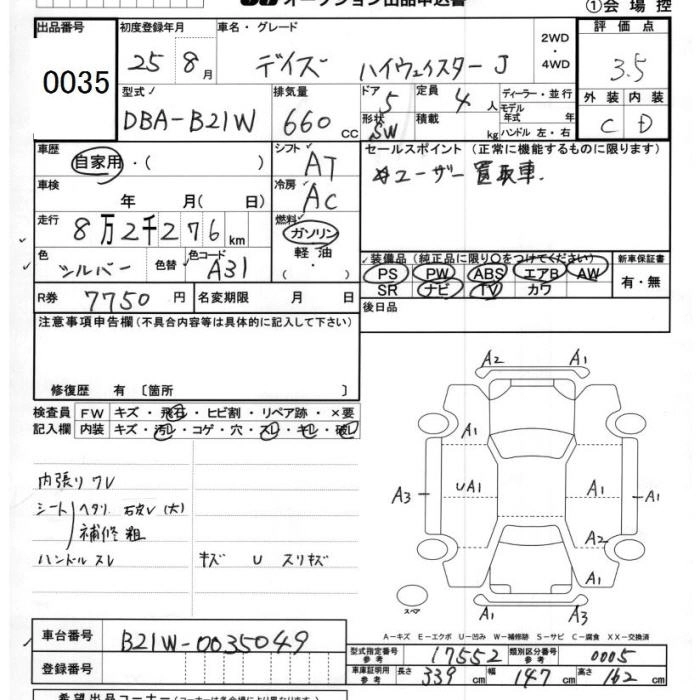 オークション出品申込書
①会場控
出品番号 初度登録年月 車名・グレード 2WD・4WD 評価点
0035 25 8月 デイズ ハイウェイスター J 3.5
型式 排気量 ドア 5 定員 4人 ディーラー・並行 外装 内装
DBA-B21W 660cc 形状 SW 積載 kg モデル年式 年 ハンドル 左・右 C D
車歴 自家用・( ) シフト AT セールスポイント (正常に機能するものに限ります)
車検 年 月(日) 冷房 AC ユーザー買取車.
走行 8万2千276km 燃料 ガソリン 軽油 ( ・ )
色 シルバー 色替 色コード A31 装備品 (純正品に限り○をつけてください) 新車保証書
PS PW ABS エアB AW 有・無
SR ナビ TV カワ
R券 7750円 名変期限 月 日 後日品
注意事項申告欄 (不具合内容等は具体的に記入して下さい)
修復歴 有 〔箇所 〕
検査員 FW キズ・飛石・ヒビ割・リペア跡・×要
記入欄 内装 キズ・汚レ・コゲ・穴・スレ・キレ・破レ
内張り ワレ
シート ヘタリ (大)
補修 粗
ハンドル スレ キズ U スリキズ
A2 A1
A1
A3 UA1 A1 A1
A2
A1
スペア
A1 A3
A-キズ E-エクボ U-凹み W-補修跡 S-サビ C-腐食 XX-交換済
車台番号 B21W-0035049
登録番号
型式指定番号 参考 17552 類別区分番号 参考 0005
車庫証明用 参考 長さ 339cm 幅 147cm 高さ 162cm
希望出品コーナー